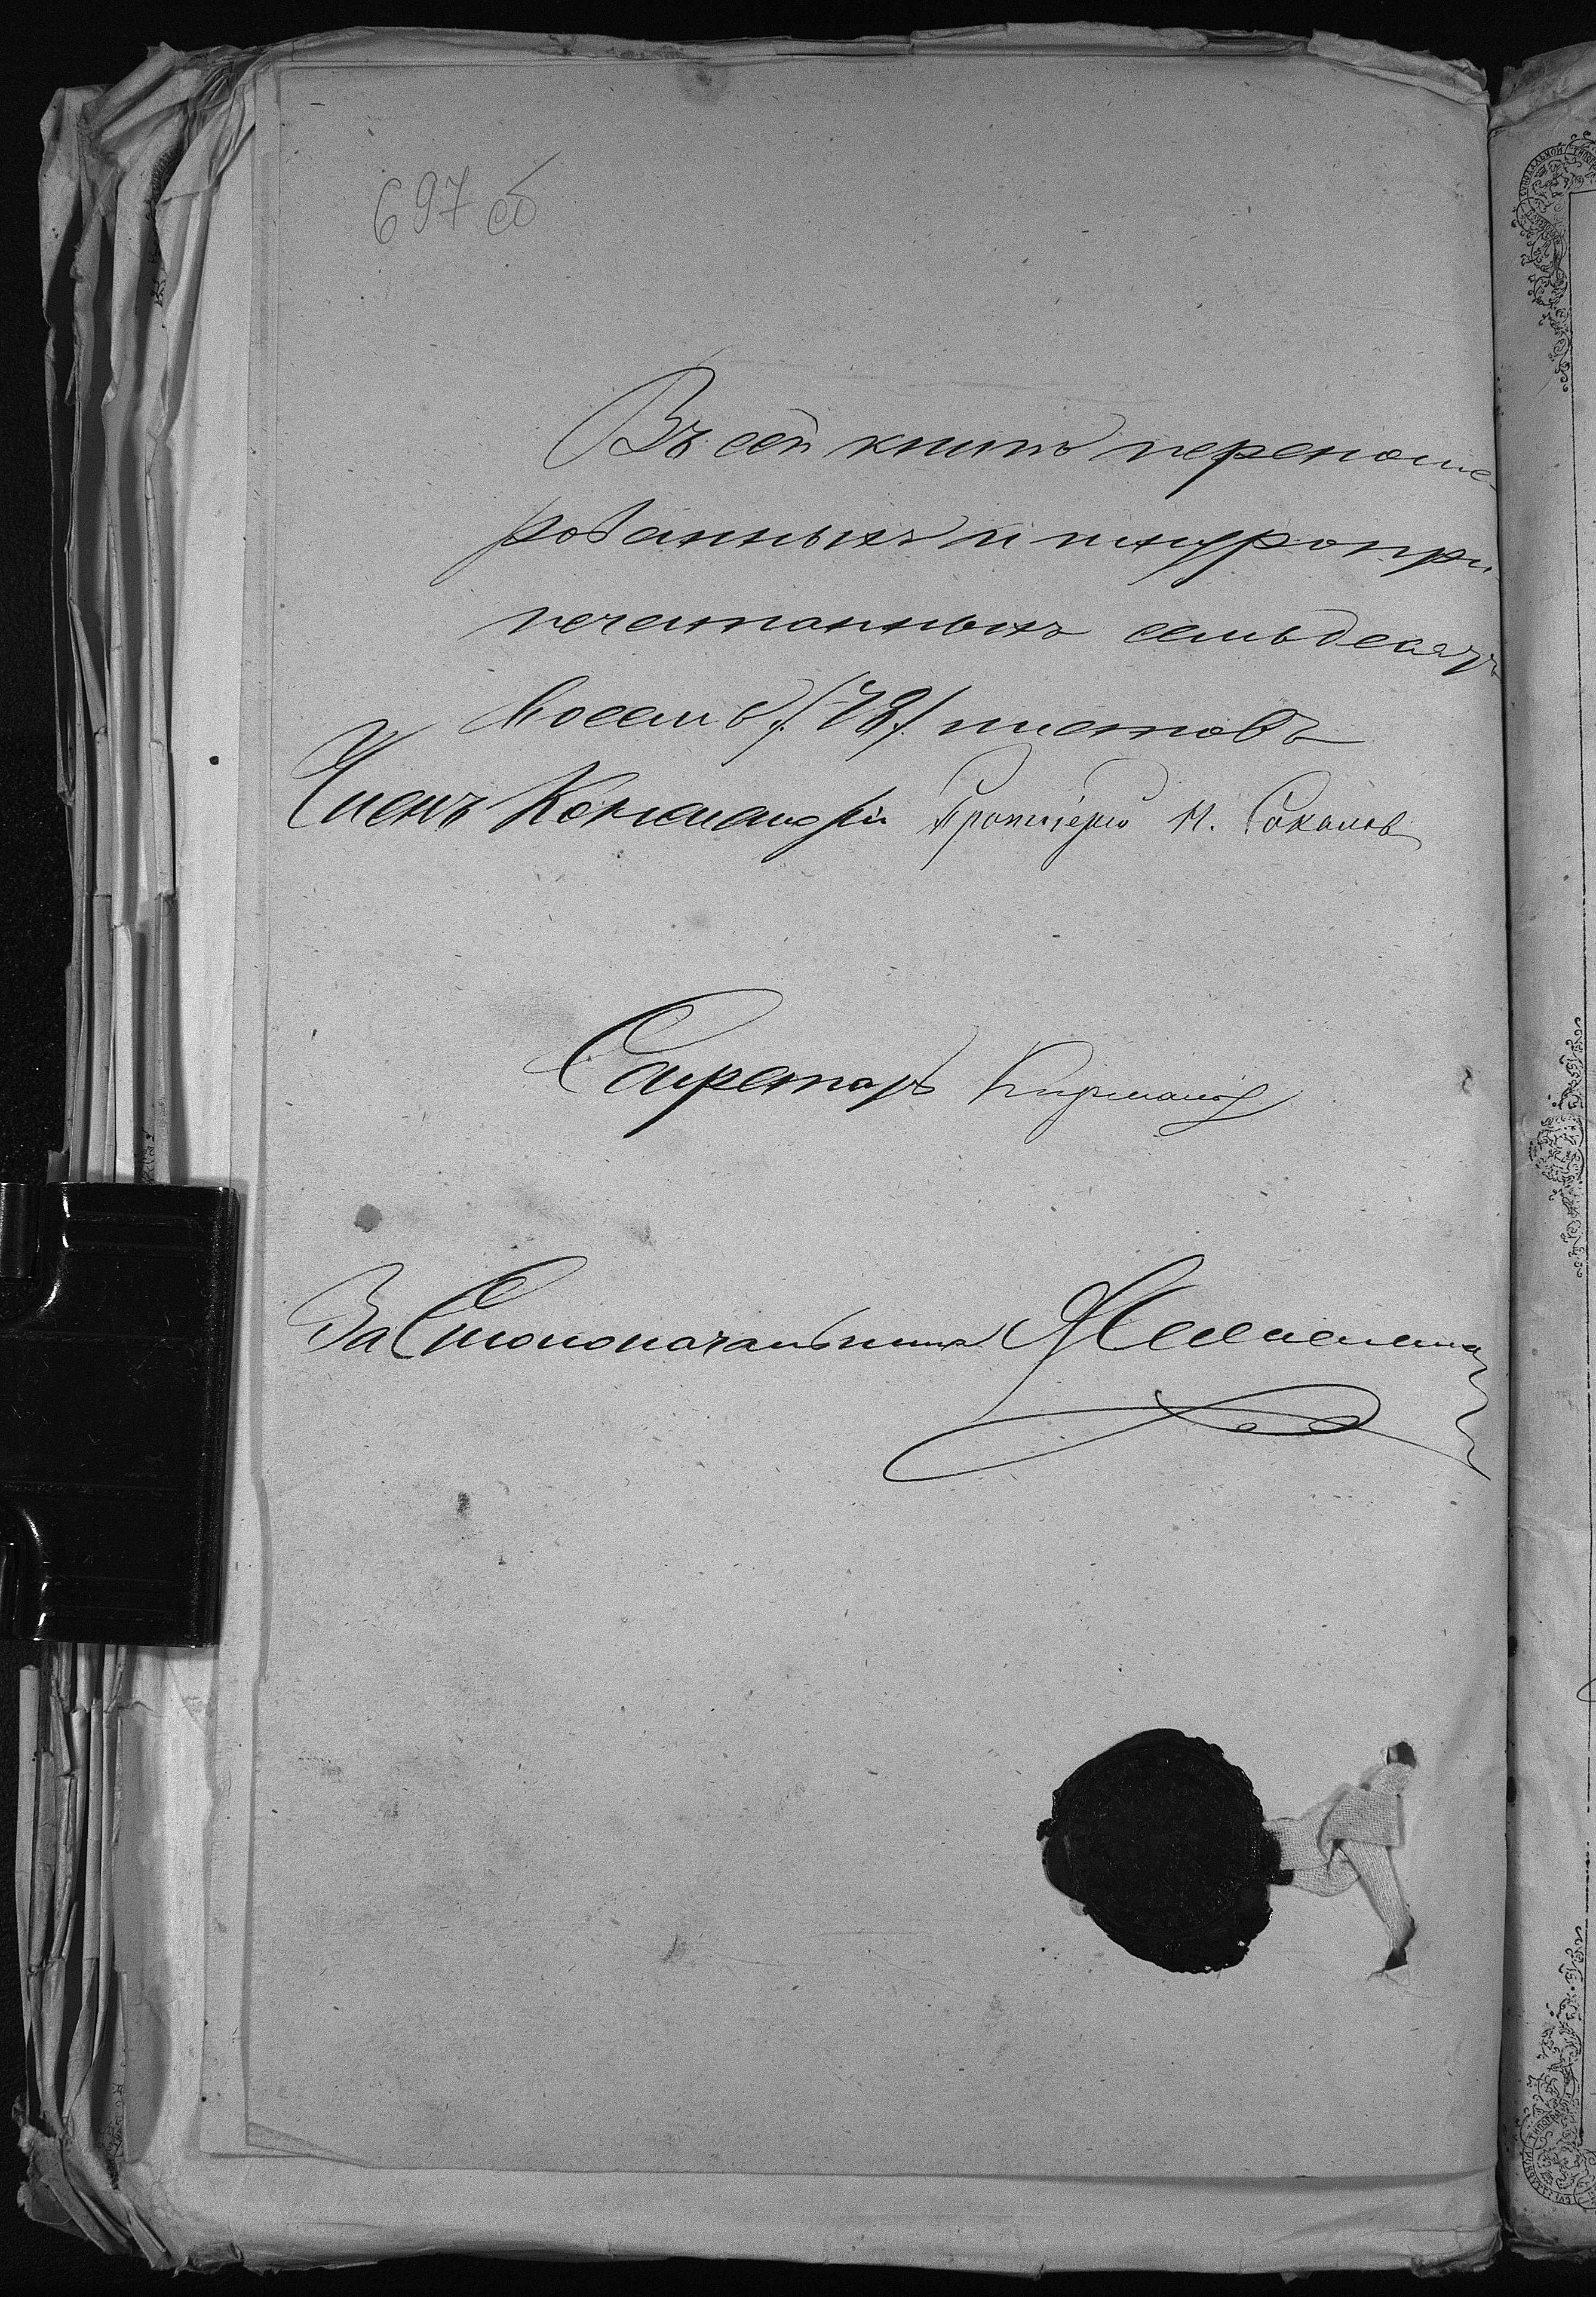 697 об
Въ сей книгѣ перенуме-
рованныхъ и шнуропри-
печатанныхъ семьдесятъ
восемь /78/ листовъ
Членъ Консисторіи Протоіерей Н. Соколовъ
Секретарь
За Столоначальника